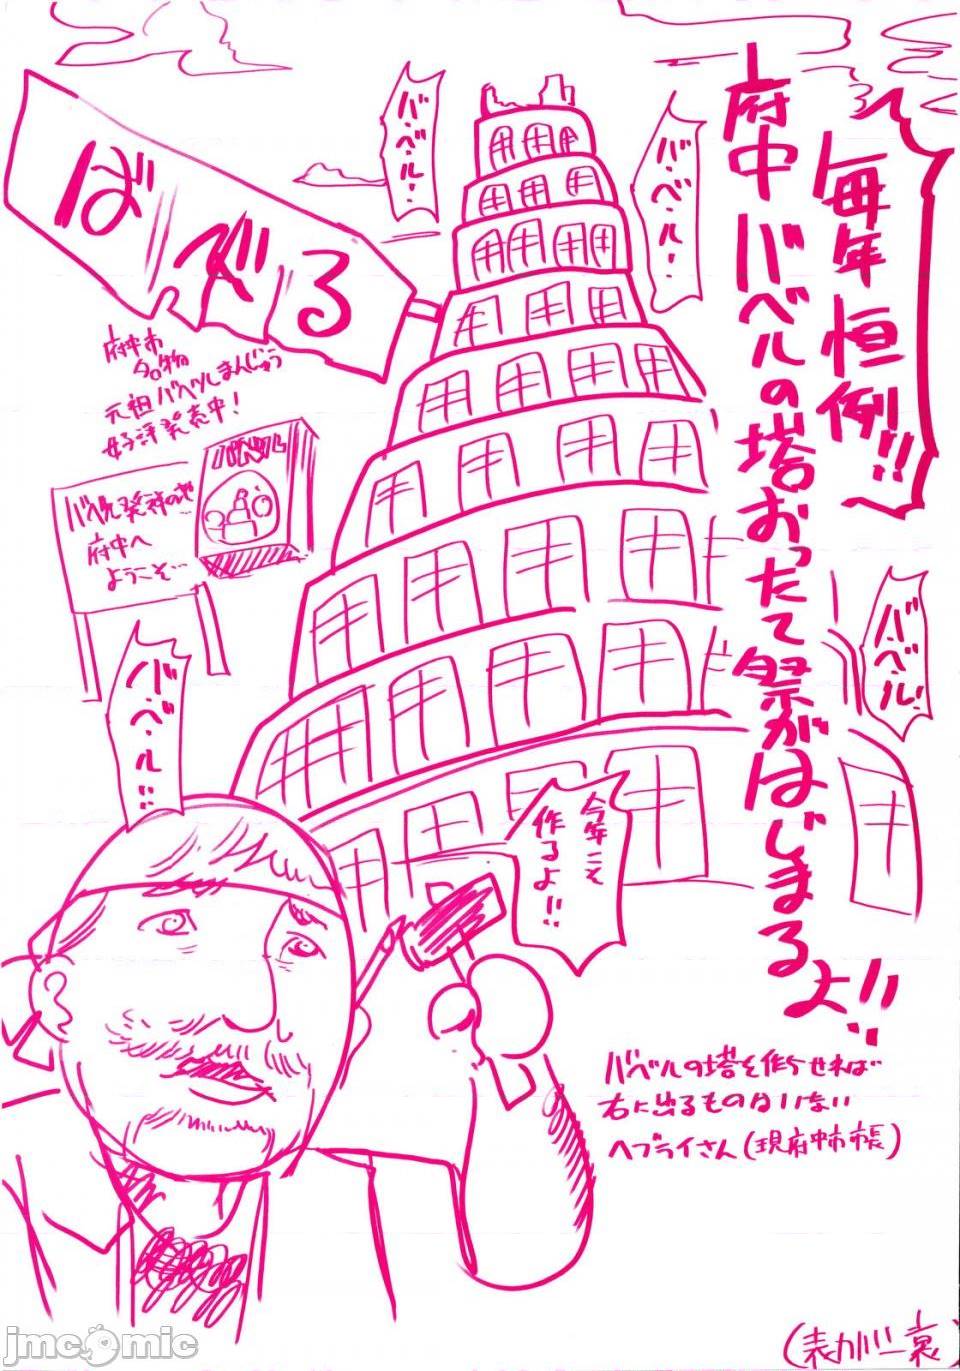 毎年恒例!!
府中バベルの塔おったて祭がはじまるよ!!
バ・ベ・ル・!
バ・ベ・ル・!
ばべる
府中市
名物
元祖バベルまんじゅう
好評発売中!
バベル
バベル発祥の地
府中へ
ようこそ…
バ・ベ・ル!
バ・ベ・ル!!
今年こそ
作るよ!!
バベルの塔を作らせれば
右に出るものはいない
ヘブライさん(現府中市市長)
(表カバー裏)
jmcomic